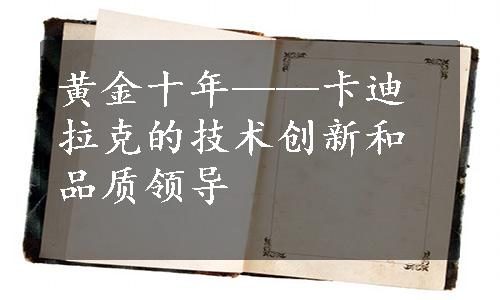 黄金十年——卡迪
拉克的技术创新和
品质领导